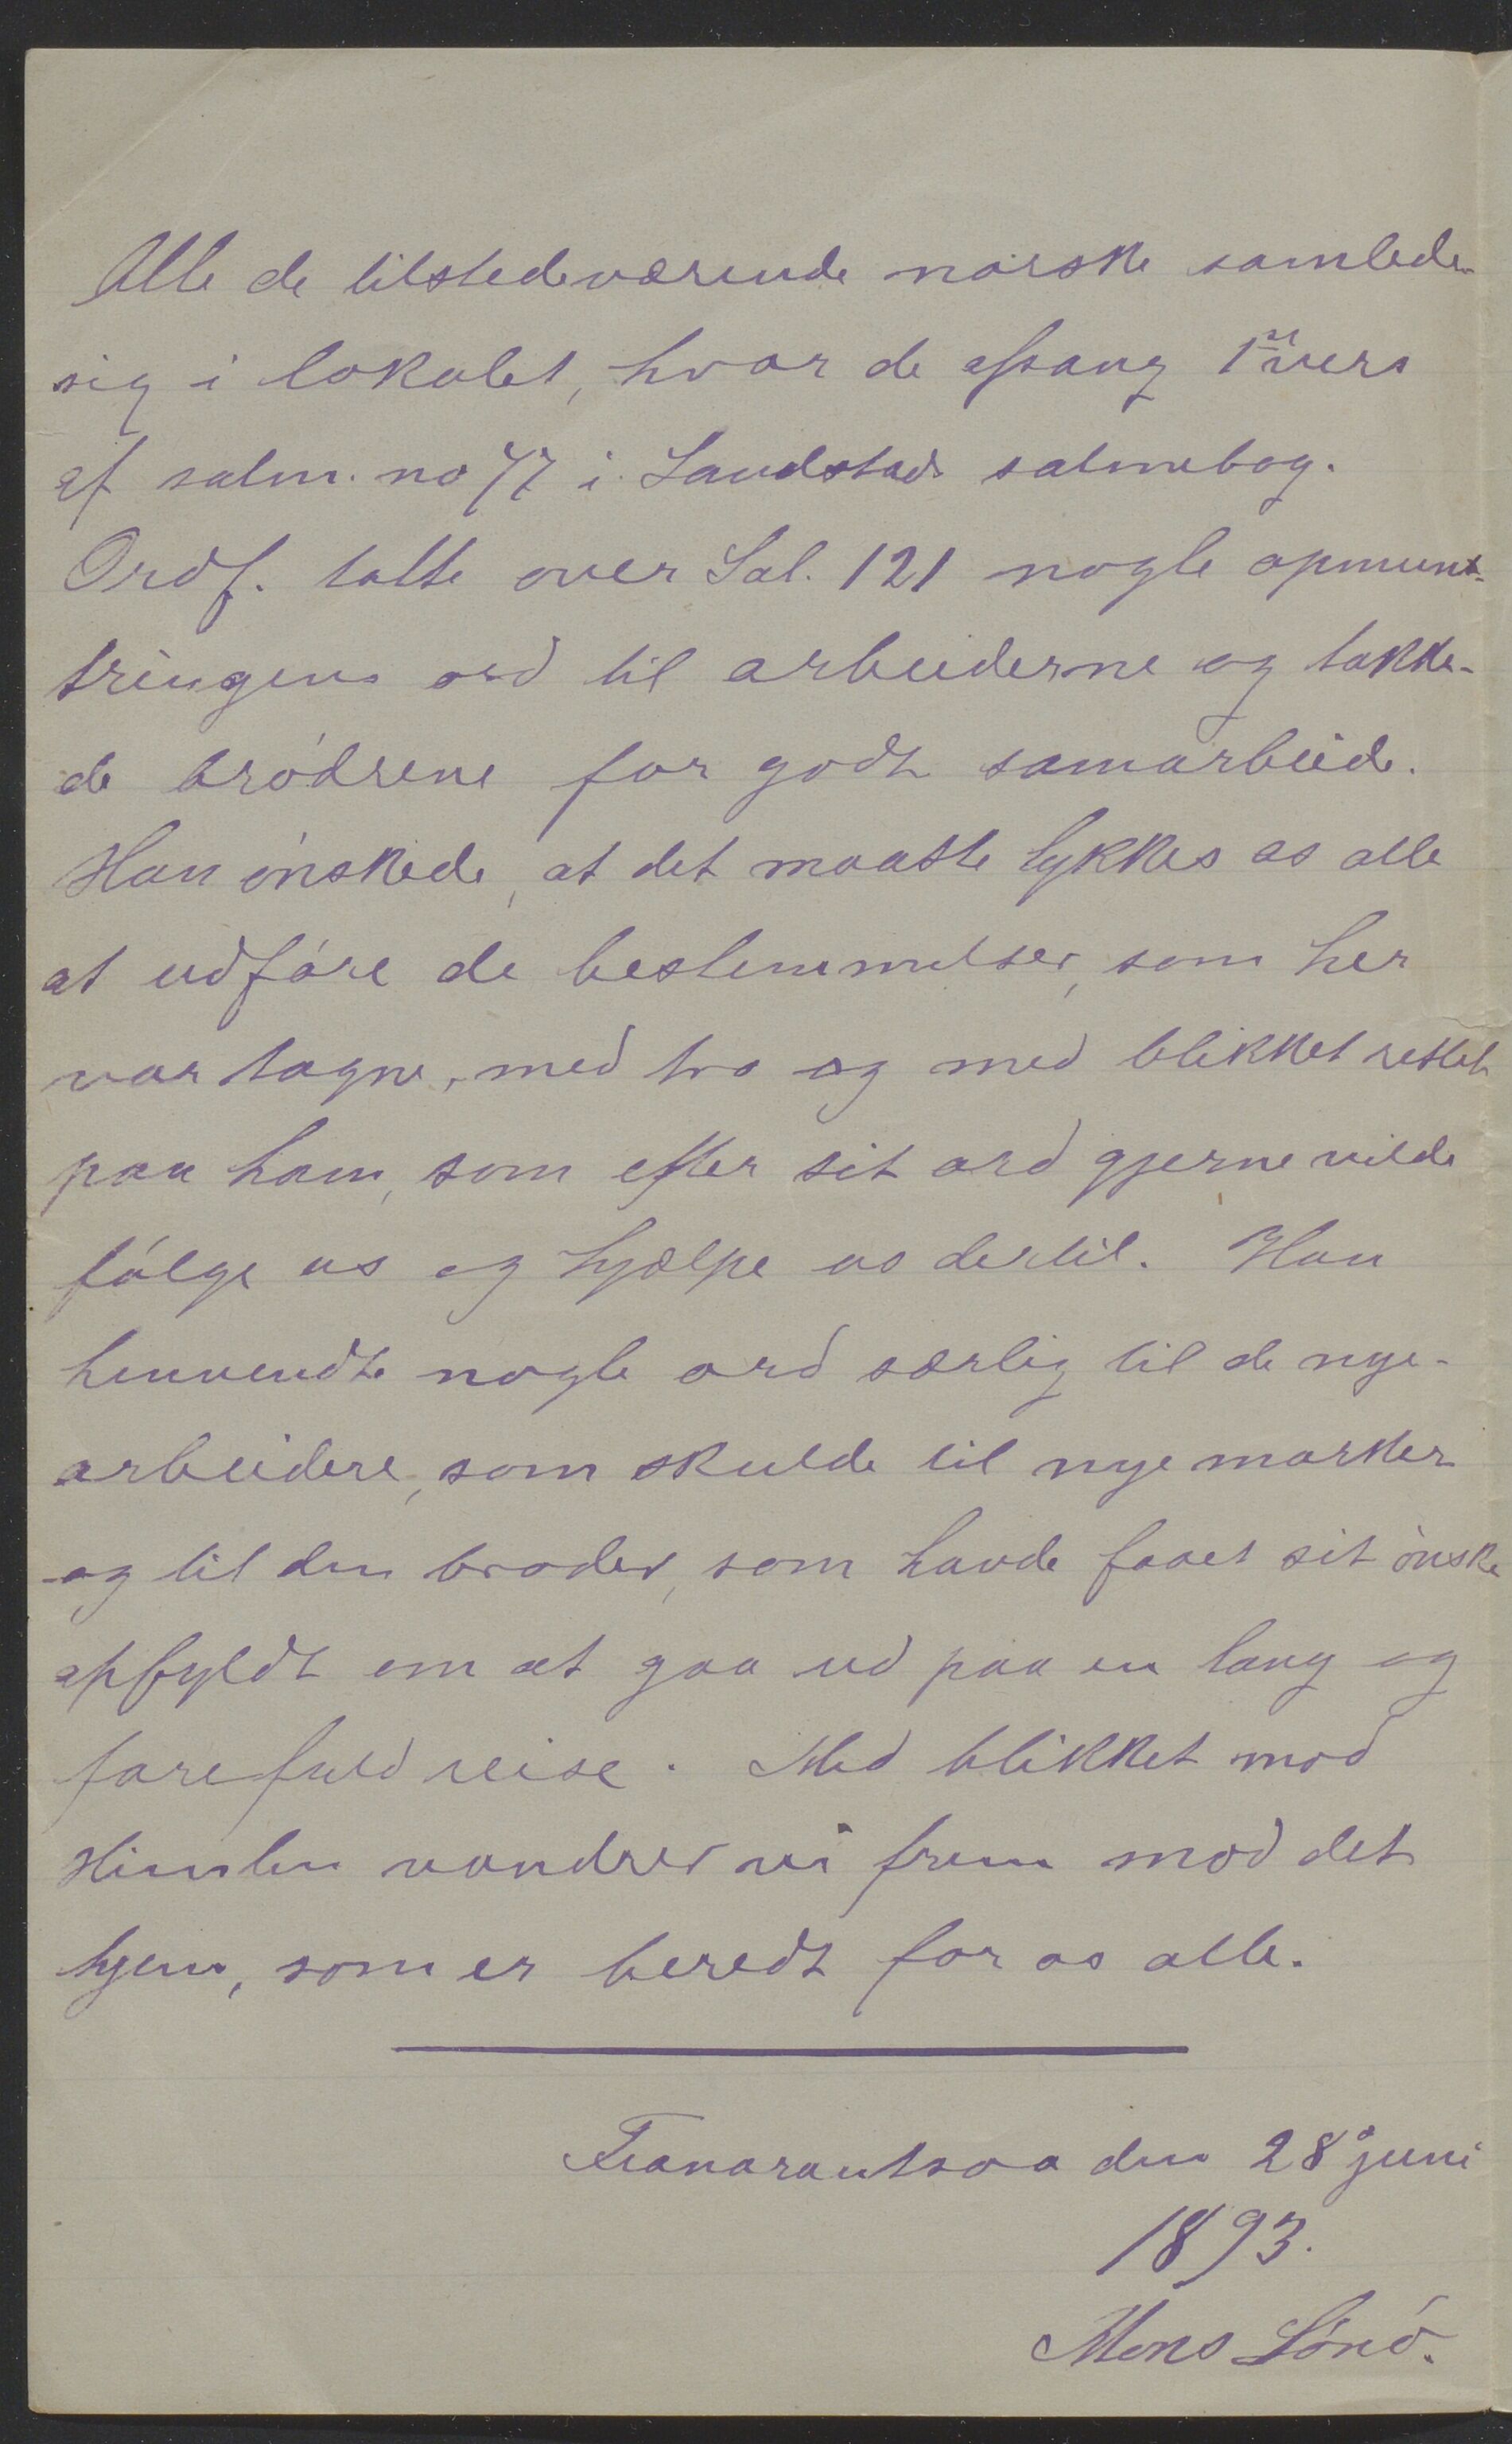 Alle de tilstedeværende norske samlede
sig i lokalet, hvor de afsang 1ste vers
af salm. no 77 i Landstads salmebog.
Ordf. talte over Sal. 121 nogle opmunt-
tringens ord til arbeiderne og takke-
de brødrene for godt samarbeide.
Han ønskede, at det maatte lykkes os alle
at udføre de bestemmelser, som her
var tagne, med tro og med blikket rettet
paa ham, som efter sit ord gjerne vilde
følge os og hjælpe os dertil. Han
henvendte nogle ord særlig til de nye-
arbeidere, som skulde til nye marker
og til den broder, som havde faaet sit ønske
opfyldt om at gaa ud paa en lang og
farefuld reise. Med blikket mod
Himlen vandrer vi frem mod det
hjem, som er beredt for os alle.
Fianarantsoa den 28de juni
1893.
Mons Lønø.